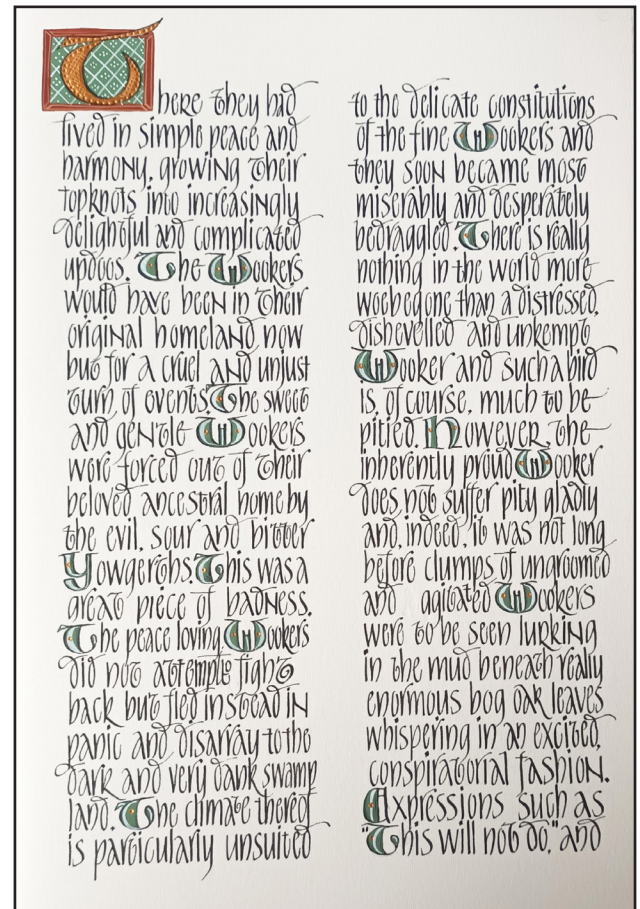 There they had
lived in simple peace and
harmony, growing their
topknots into increasingly
delightful and complicated
updoos. The Wookers
would have been in their
original homeland now
but for a cruel and unjust
turn of events. The sweet
and gentle Wookers
were forced out of their
beloved ancestral home by
the evil, sour and bitter
Yowgerths. This was a
great piece of badness.
The peace loving Wookers
did not attempt to fight
back but fled instead in
panic and disarray to the
dark and very dank swamp
land. The climate thereof
is particularly unsuited
to the delicate constitutions
of the fine Wookers and
they soon became most
miserably and desperately
bedraggled. There is really
nothing in the world more
woebegone than a distressed,
dishevelled and unkempt
Wooker and such a bird
is, of course, much to be
pitied. However, the
inherently proud Wooker
does not suffer pity gladly
and, indeed, it was not long
before clumps of ungroomed
and agitated Wookers
were to be seen lurking
in the mud beneath really
enormous bog oak leaves
whispering in an excited,
conspiratorial fashion.
Expressions such as
"This will not do," and